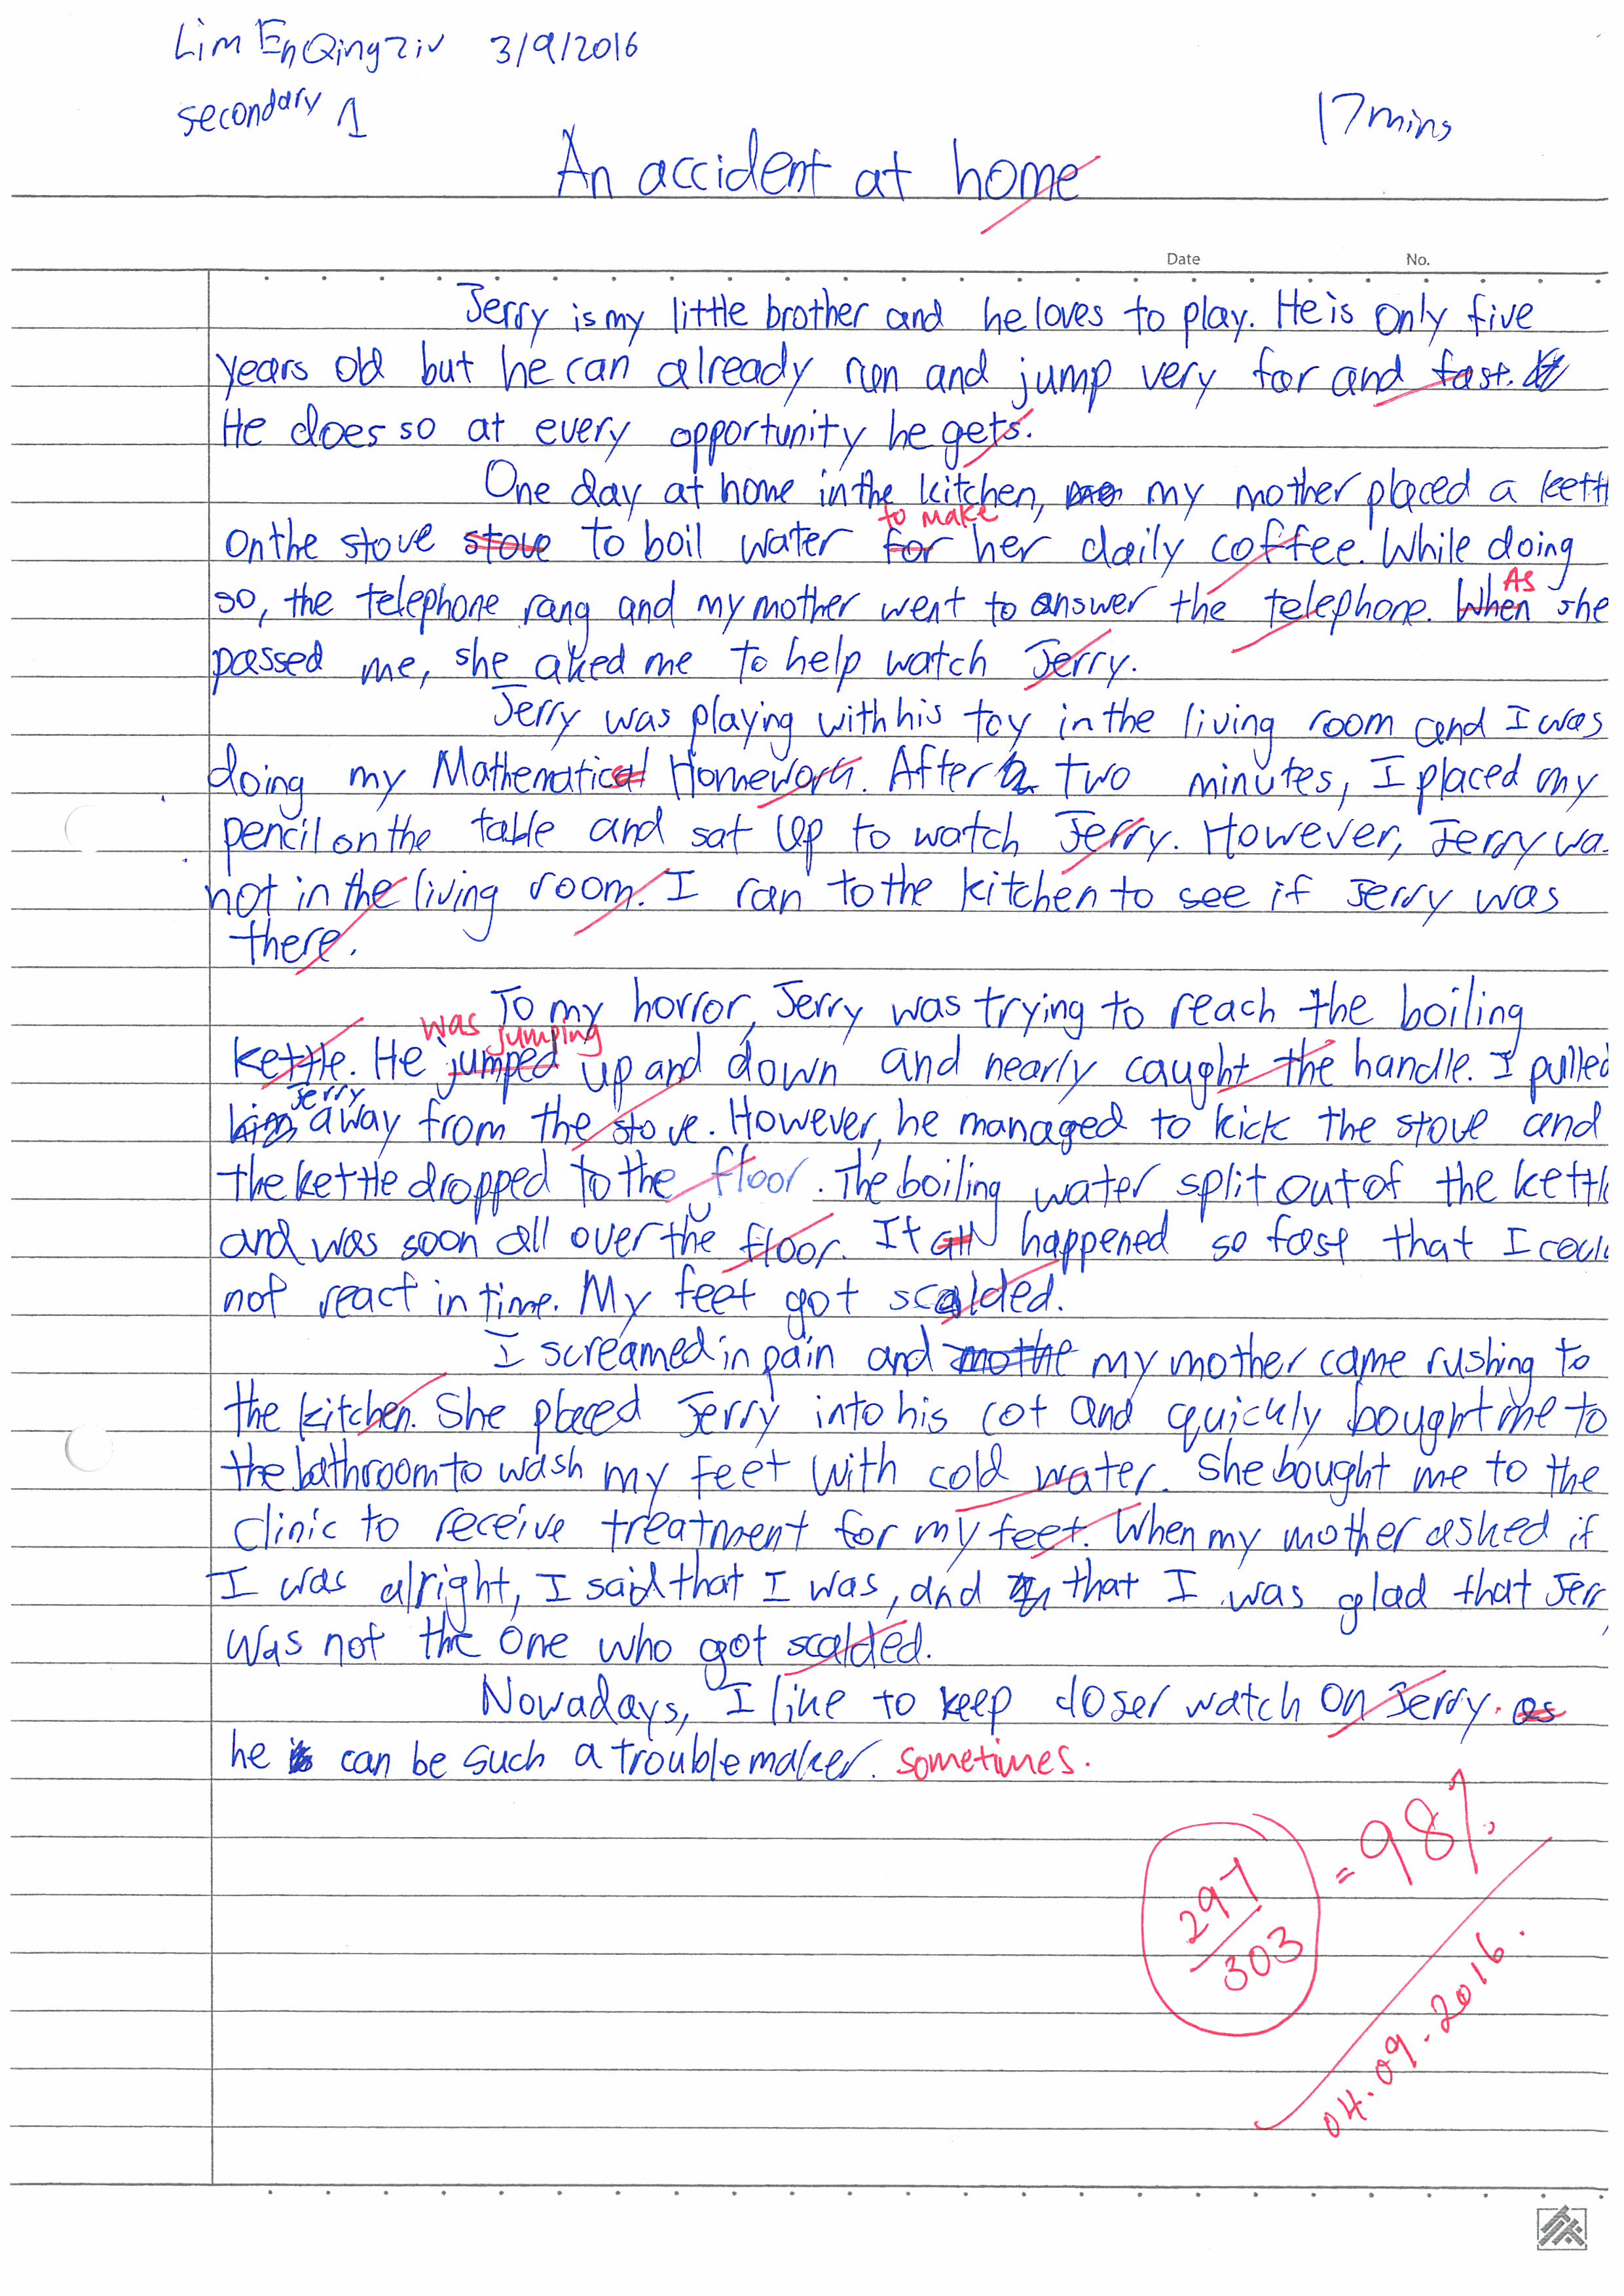 Lim En Qing Ziv 3/9/2016
secondary 1
17 mins
An accident at home
Date No.
Jerry is my little brother and he loves to play. He is only five
years old but he can already run and jump very far and fast.
He does so at every opportunity he gets.
One day at home in the kitchen, my mother placed a kettl
to make
on the stove stove to boil water for her daily coffee. While doing
As
so, the telephone rang and my mother went to answer the telephone. When she
passed me, she aked me to help watch Jerry.
Jerry was playing with his toy in the living room and I was
doing my Mathematical Homework. After two minutes, I placed my
pencil on the table and sat up to watch Jerry. However, Jerry wa
not in the living room. I ran to the kitchen to see if Jerry was
there.
To my horror, Jerry was trying to reach the boiling
was jumping
kettle. He jumped up and down and nearly caught the handle. I pulled
Jerry
him away from the stove. However, he managed to kick the stove and
the kettle dropped to the floor. The boiling water split out of the kettl
and was soon all over the floor. It all happened so fast that I coul
not react in time. My feet got scalded.
I screamed in pain and mothe my mother came rushing to
the kitchen. She placed Jerry into his cot and quickly bought me to
the bathroom to wash my feet with cold water. She bought me to the
clinic to receive treatment for my feet. When my mother asked if
I was alright, I said that I was, and that I was glad that Jerr
was not the one who got scalded.
Nowadays, I like to keep closer watch on Jerry. as
he is can be such a troublemaker. sometimes.
297/303 = 98%
04.09.2016.